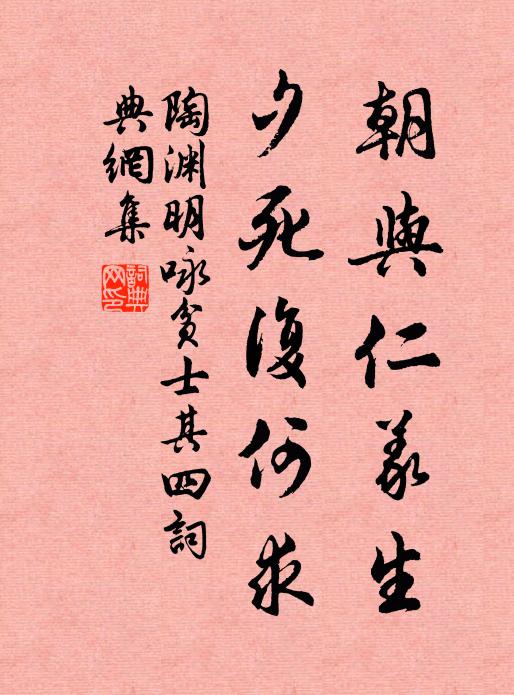 朝與仁義生
夕死復何求
陶渊明咏贫士其四詞
典網集
詞典
网印